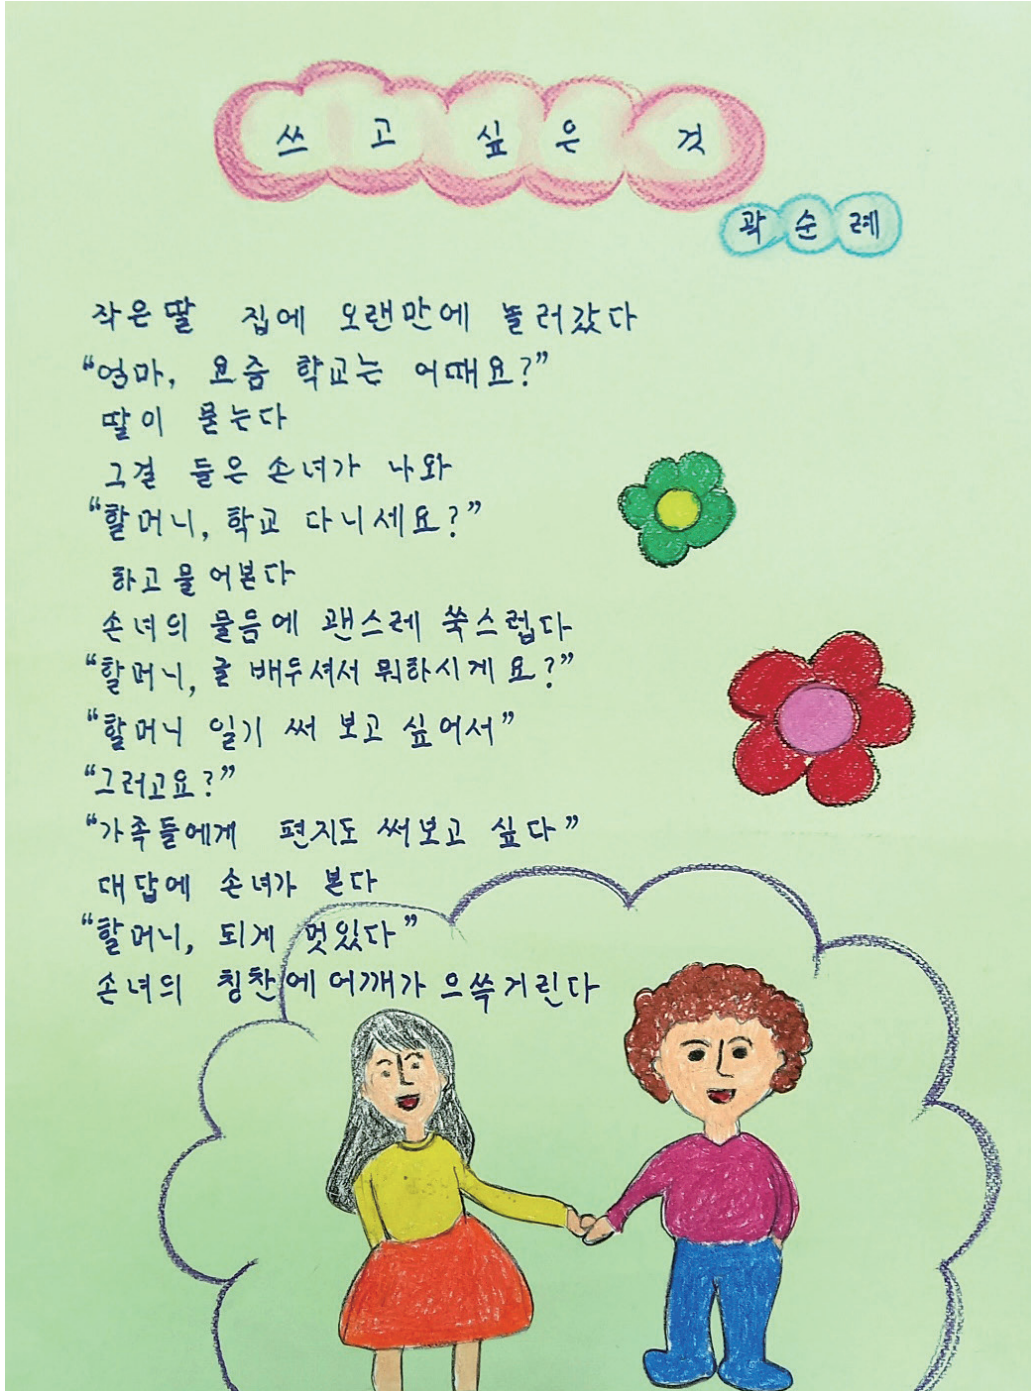 쓰고 싶은 것
곽순례
작은딸 집에 오랜만에 놀러갔다
“엄마, 요즘 학교는 어때요?”
딸이 묻는다
그걸 들은 손녀가 나와
“할머니, 학교 다니세요?”
하고 물어본다
손녀의 물음에 괜스레 쑥스럽다
“할머니, 글 배우셔서 뭐하시게요?”
“할머니 일기 써 보고 싶어서”
“그러고요?”
“가족들에게 편지도 써보고 싶다”
대답에 손녀가 본다
“할머니, 되게 멋있다”
손녀의 칭찬에 어깨가 으쓱거린다